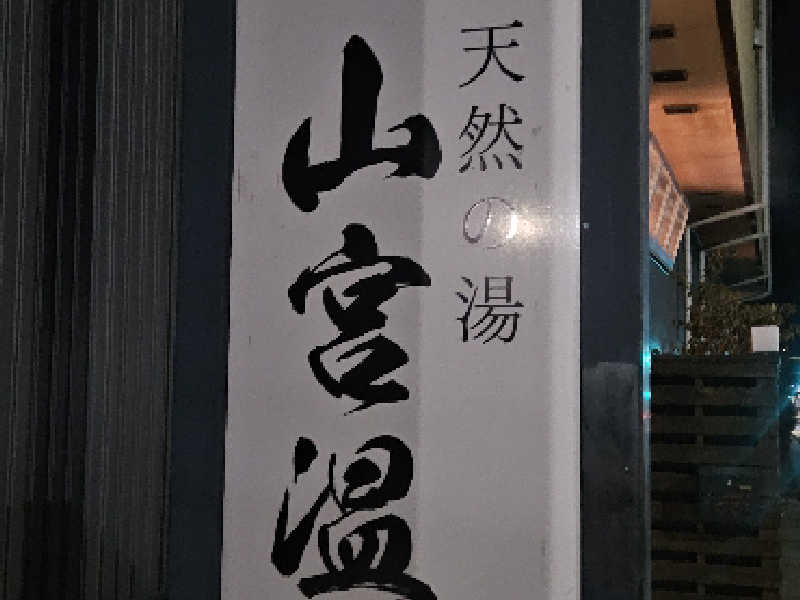 天然の湯
山宮温